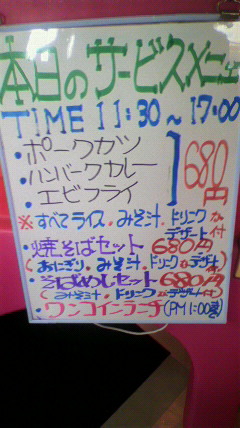 本日のサービスメニュー
TIME 11:30~17:00
・ポークカツ
・ハンバークカレー
・エビフライ
680円
※すべてライス.みそ汁.ドリンクかデザート付
・焼そばセット 680円
(おにぎり.みそ汁.ドリンクかデザート付)
・そばめしセット 680円
(みそ汁.ドリンクかデザート付)
・ワンコインランチ(PM1:00迄)